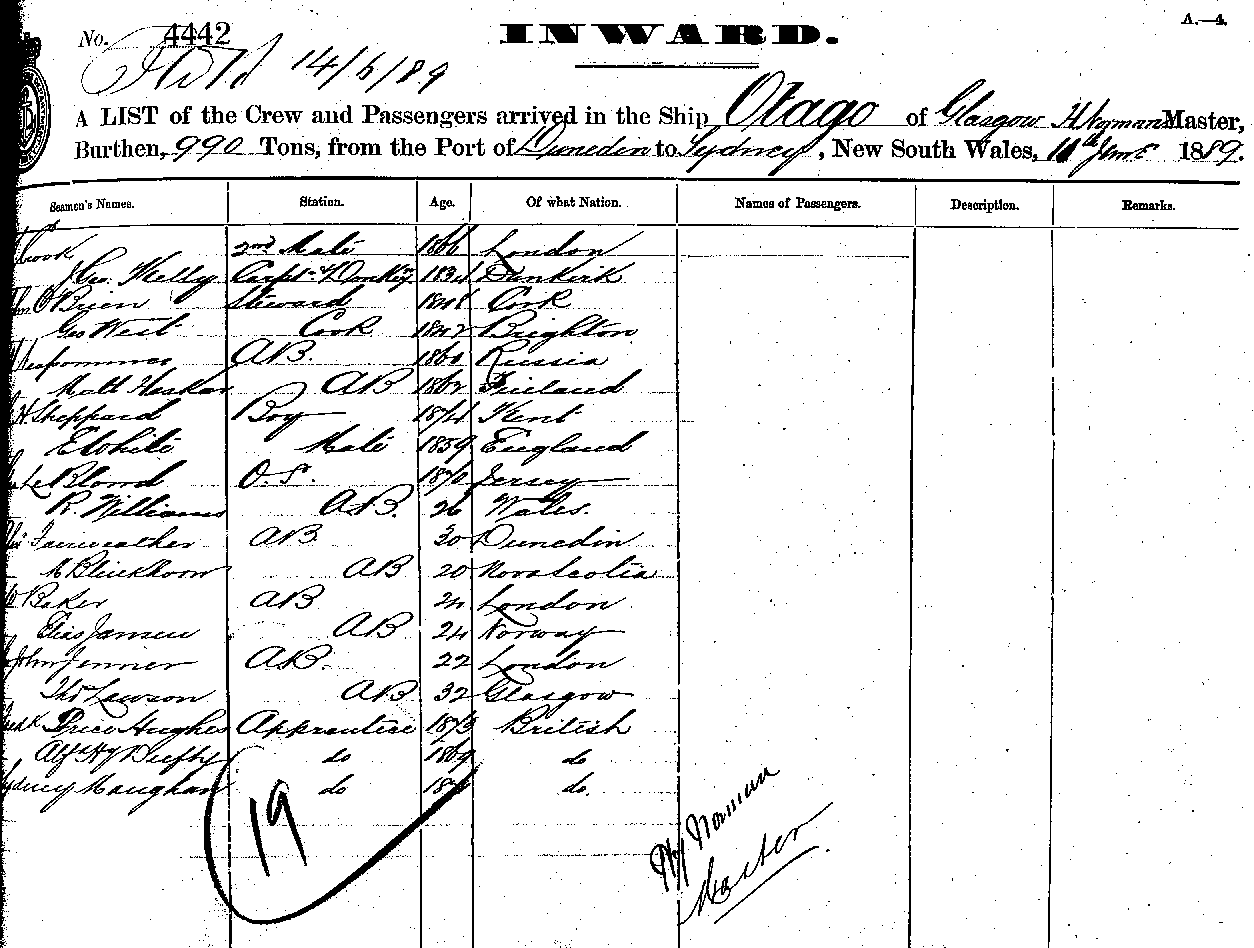 A.—4.
No. 4442 INWARD.
14/6/89
A LIST of the Crew and Passengers arrived in the Ship Otago of Glasgow Master,
Burthen, 990 Tons, from the Port of Dunedin to Sydney, New South Wales, 11th June 1889.
Seamen's Names. Station. Age. Of what Nation. Names of Passengers. Description. Remarks.
Cook 2nd Mate 1866 London
Geo. Kelly Carpt & Donkeyn 1834 Dunkirk
O'Brien Steward Cork
Geo West Cook 1842 Brighton
A.B. 1860 Russia
Matt AB 1862 Finland
H Sheppard Boy 1874 Kent
E White Mate 1859 England
Le Blond O.S. 1870 Jersey
R. Williams AB. 26 Wales.
Fairweather AB 30 Dunedin
AB 20 Nova Scotia
Baker AB London
Elias Jansen AB 24 Norway
John Jenner A.B. 22 London
Thos Lawson AB 32 Glasgow
Fredk Price Hughes Apprentice 1873 British
Alf Hy do 1869 do
Sydney Maughan do do.
19
Hy Naman
Master